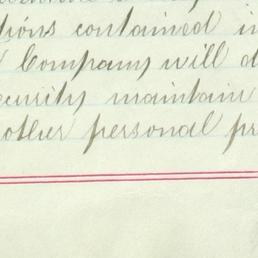 tions contained in
Company will d
ecurity maintain
other personal pr